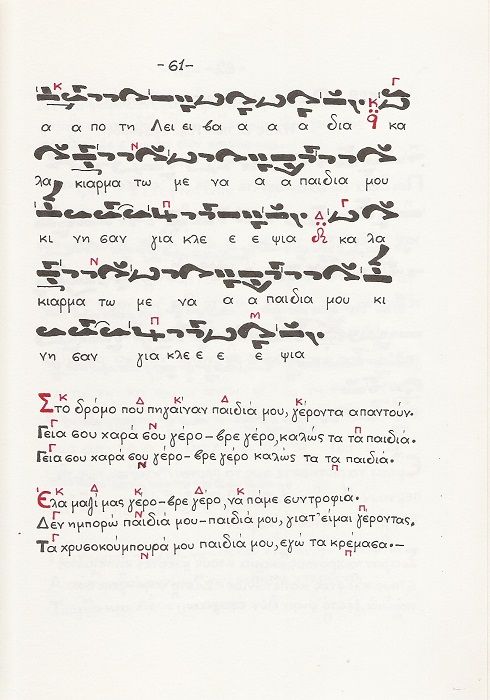 -61-
α α πο τη Λει ει βα α α α δια κα
λα κιαρμα τω με να α α παιδια μου
κι νη σαν για κλε ε ε ψια κα λα
κιαρμα τω με να α α παιδια μου κι
νη σαν για κλε ε ε ε ψια
Στο δρόμο που πηγαίναν παιδιά μου, γέροντα απαντούν.
Γεια σου χαρά σου γέρο-βρε γέρο, καλώς τα τα παιδιά.
Γεια σου χαρά σου γέρο-βρε γέρο καλώς τα τα παιδιά.
Έλα μαζί μας γέρο-βρε γέρο, να πάμε συντροφιά.
Δεν ημπορώ παιδιά μου-παιδιά μου, γιατ' είμαι γέροντας.
Τα χρυσοκούμπουρά μου παιδιά μου, εγώ τα κρέμασα.-